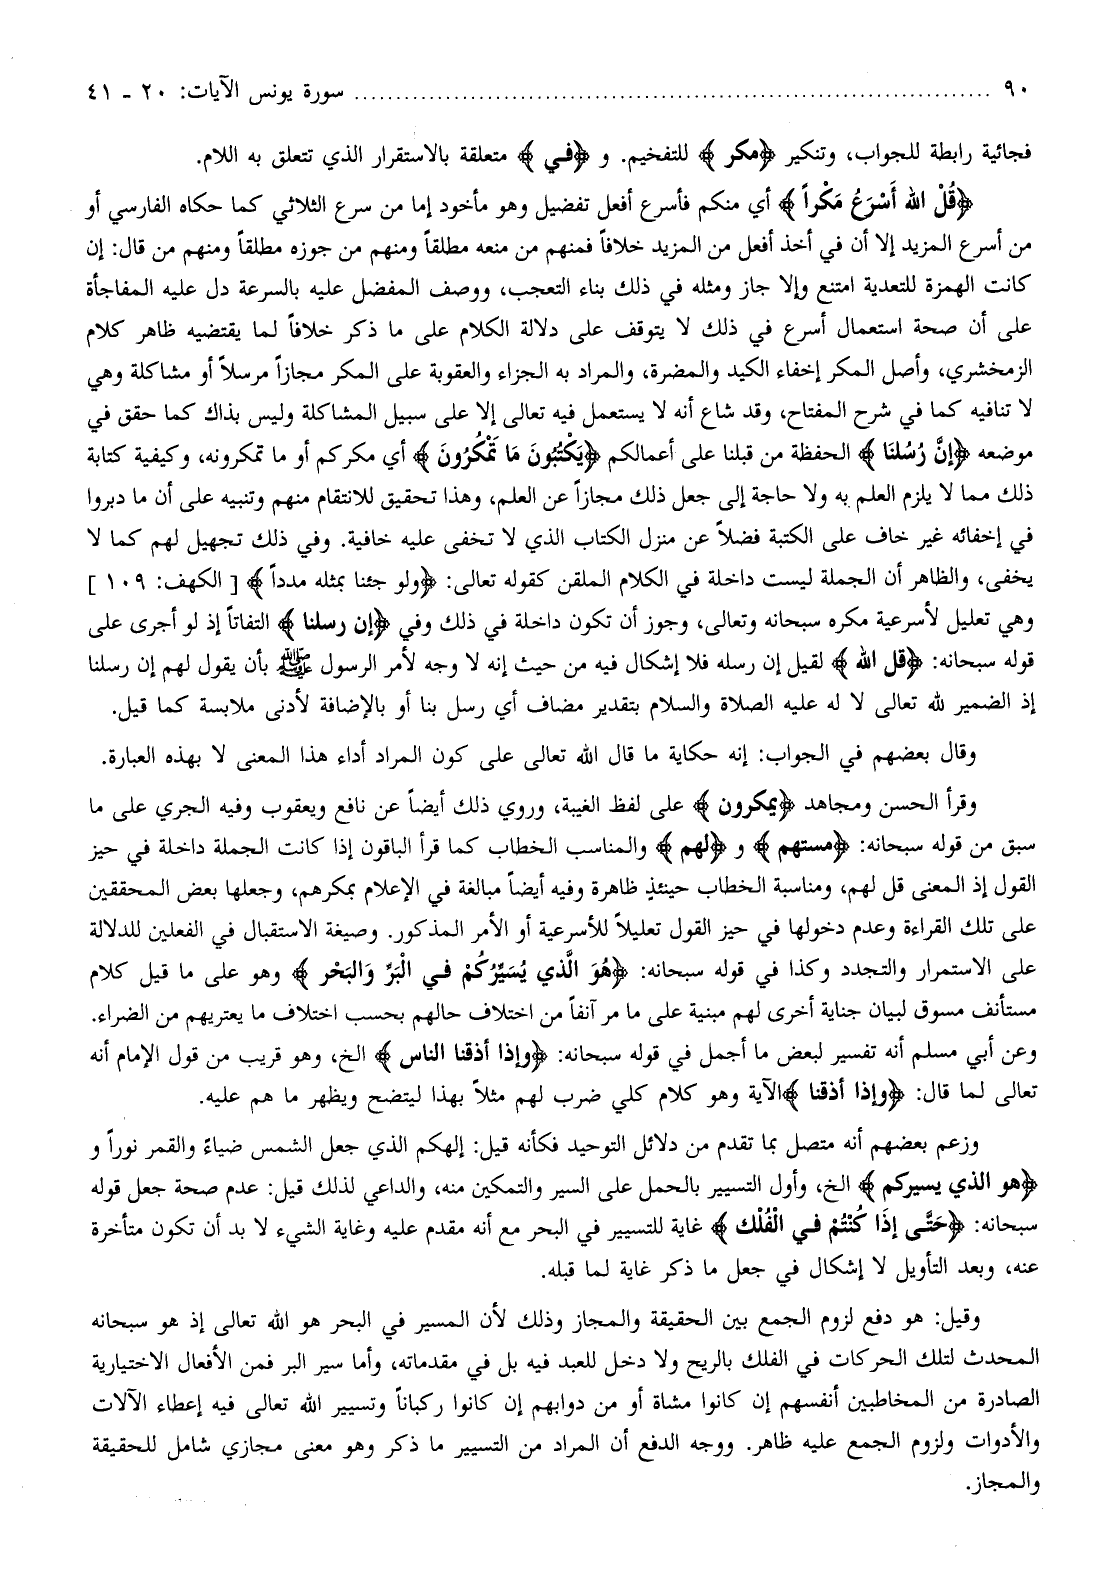 ٩٠ ........................................................................ سورة يونس الآيات: ٢٠ - ٤١
فجائية رابطة للجواب، وتنكير ﴿مكر﴾ للتفخيم. و ﴿في﴾ متعلقة بالاستقرار الذي تتعلق به اللام.
﴿قُلْ الله أَسْرَعُ مَكْراً﴾ أي منكم فأسرع أفعل تفضيل وهو مأخود إما من سرع الثلاثي كما حكاه الفارسي أو
من أسرع المزيد إلا أن في أخذ أفعل من المزيد خلافاً فمنهم من منعه مطلقاً ومنهم من جوزه مطلقاً ومنهم من قال: إن
كانت الهمزة للتعدية امتنع وإلا جاز ومثله في ذلك بناء التعجب، ووصف المفضل عليه بالسرعة دل عليه المفاجأة
على أن صحة استعمال أسرع في ذلك لا يتوقف على دلالة الكلام على ما ذكر خلافاً لما يقتضيه ظاهر كلام
الزمخشري، وأصل المكر إخفاء الكيد والمضرة، والمراد به الجزاء والعقوبة على المكر مجازاً مرسلاً أو مشاكلة وهي
لا تنافيه كما في شرح المفتاح، وقد شاع أنه لا يستعمل فيه تعالى إلا على سبيل المشاكلة وليس بذاك كما حقق في
موضعه ﴿إنَّ رُسُلنَا﴾ الحفظة من قبلنا على أعمالكم ﴿يَكْتُبُونَ مَا تَمْكُرُونَ﴾ أي مكركم أو ما تمكرونه، وكيفية كتابة
ذلك مما لا يلزم العلم به ولا حاجة إلى جعل ذلك مجازاً عن العلم، وهذا تحقيق للانتقام منهم وتنبيه على أن ما دبروا
في إخفائه غير خاف على الكتبة فضلاً عن منزل الكتاب الذي لا تخفى عليه خافية. وفي ذلك تجهيل لهم كما لا
يخفى، والظاهر أن الجملة ليست داخلة في الكلام الملقن كقوله تعالى: ﴿ولو جئنا بمثله مدداً﴾ [ الكهف: ١٠٩ ]
وهي تعليل لأسرعية مكره سبحانه وتعالى، وجوز أن تكون داخلة في ذلك وفي ﴿إن رسلنا﴾ التفاتاً إذ لو أجرى على
قوله سبحانه: ﴿قل الله﴾ لقيل إن رسله فلا إشكال فيه من حيث إنه لا وجه لأمر الرسول ﷺ بأن يقول لهم إن رسلنا
إذ الضمير لله تعالى لا له عليه الصلاة والسلام بتقدير مضاف أي رسل بنا أو بالإضافة لأدنى ملابسة كما قيل.
وقال بعضهم في الجواب: إنه حكاية ما قال الله تعالى على كون المراد أداء هذا المعنى لا بهذه العبارة.
وقرأ الحسن ومجاهد ﴿يمكرون﴾ على لفظ الغيبة، وروي ذلك أيضاً عن نافع ويعقوب وفيه الجري على ما
سبق من قوله سبحانه: ﴿مستهم﴾ و ﴿لهم﴾ والمناسب الخطاب كما قرأ الباقون إذا كانت الجملة داخلة في حيز
القول إذ المعنى قل لهم، ومناسبة الخطاب حينئذٍ ظاهرة وفيه أيضاً مبالغة في الإعلام بمكرهم، وجعلها بعض المحققين
على تلك القراءة وعدم دخولها في حيز القول تعليلاً للأسرعية أو الأمر المذكور. وصيغة الاستقبال في الفعلين للدلالة
على الاستمرار والتجدد وكذا في قوله سبحانه: ﴿هُوَ الَّذي يُسَيِّرُكُمْ في الْبَرِّ وَالبَحْر﴾ وهو على ما قيل كلام
مستأنف مسوق لبيان جناية أخرى لهم مبنية على ما مر آنفاً من اختلاف حالهم بحسب اختلاف ما يعتريهم من الضراء.
وعن أبي مسلم أنه تفسير لبعض ما أجمل في قوله سبحانه: ﴿وإذا أذقنا الناس﴾ الخ، وهو قريب من قول الإمام أنه
تعالى لما قال: ﴿وإذا أذقنا﴾الآية وهو كلام كلي ضرب لهم مثلاً بهذا ليتضح ويظهر ما هم عليه.
وزعم بعضهم أنه متصل بما تقدم من دلائل التوحيد فكأنه قيل: إلهكم الذي جعل الشمس ضياءً والقمر نوراً و
﴿هو الذي يسيركم﴾ الخ، وأول التسيير بالحمل على السير والتمكين منه، والداعي لذلك قيل: عدم صحة جعل قوله
سبحانه: ﴿حَتَّى إذَا كُنْتُمْ في الْفُلْك﴾ غاية للتسيير في البحر مع أنه مقدم عليه وغاية الشيء لا بد أن تكون متأخرة
عنه، وبعد التأويل لا إشكال في جعل ما ذكر غاية لما قبله.
وقيل: هو دفع لزوم الجمع بين الحقيقة والمجاز وذلك لأن المسير في البحر هو الله تعالى إذ هو سبحانه
المحدث لتلك الحركات في الفلك بالريح ولا دخل للعبد فيه بل في مقدماته، وأما سير البر فمن الأفعال الاختيارية
الصادرة من المخاطبين أنفسهم إن كانوا مشاة أو من دوابهم إن كانوا ركباناً وتسيير الله تعالى فيه إعطاء الآلات
والأدوات ولزوم الجمع عليه ظاهر. ووجه الدفع أن المراد من التسيير ما ذكر وهو معنى مجازي شامل للحقيقة
والمجاز.